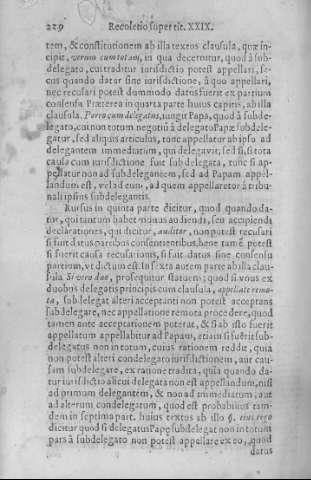 229 Recolectio super tit. XXIX.
tem, & constitutionem ab illa textos clausula, quæ in-
cipit, verum cum totam, in qua decernitur, quod à sub-
delegato, cui traditur iurisdictio potest appellari, se-
cus quando datur sine iurisdictione, à quo appellari,
nec recusari potest dummodo datus fuerit ex partium
consensu Præterea in quarta parte huius capitis, ab illa
clausula. Porro cum delegatus, iungit Papa, quod à subde-
legato, cui non totum negotiũ à delegato Papæ subdele-
gatur, sed aliquis articulus, tunc appellatur ab ipso ad
delegantem immediatum, qui delegavit; sed si, si tota
causa cum iurisdictione fuit subdelegata, tunc si ap-
pellatur non ad subdelegantem, sed ad Papam appel-
landum est, vel ad eum, ad quem appellaretor à tribu-
nali ipsius subdelegantis.
Rursus in quinta parte dicitur, quod quando da-
tur, qui tantum habet munus audiendi, seu accipiendi
declarationes, qui dicitur, auditor, non potest recusari
si fuit datus partibus consentientibus, bene tamẽ potest
si fuerit causa recusationis, si fuit datus sine consensu
partium, vt dictum est. In sexta autem parte ab illa clau-
sula. Si vero duo, prosequitur statuens; quod si vnus ex
duobus delegatis principis cum clausula, appellate remo-
ta, subdelegat alteri acceptanti non potest acceptans
subdelegare, nec appellatione remota procedere, quod
tamen ante acceptationem poterat, & si ab isto fuerit
appellatum appellabitur ad Papam, etiam si fuerit sub-
delegatus non in totum, cuius rationem reddit, quia
non potest alteri condelegato iurisdictionem, aut cau-
sam subdelegare, ex ratione tradita, quia quando da-
tur iurisdictio alicui delegata non est appellandum, nisi
ad primum delegantem, & non ad immediatum, aut
ad alterum condelegatum, quod est probabilius tan-
dem in septima part. huius textus ab illo §. eius vero
dicitur quod si delegatus Papę subdelegat non in totum
pars à subdelegato non potest appellare ex eo, quod
datus